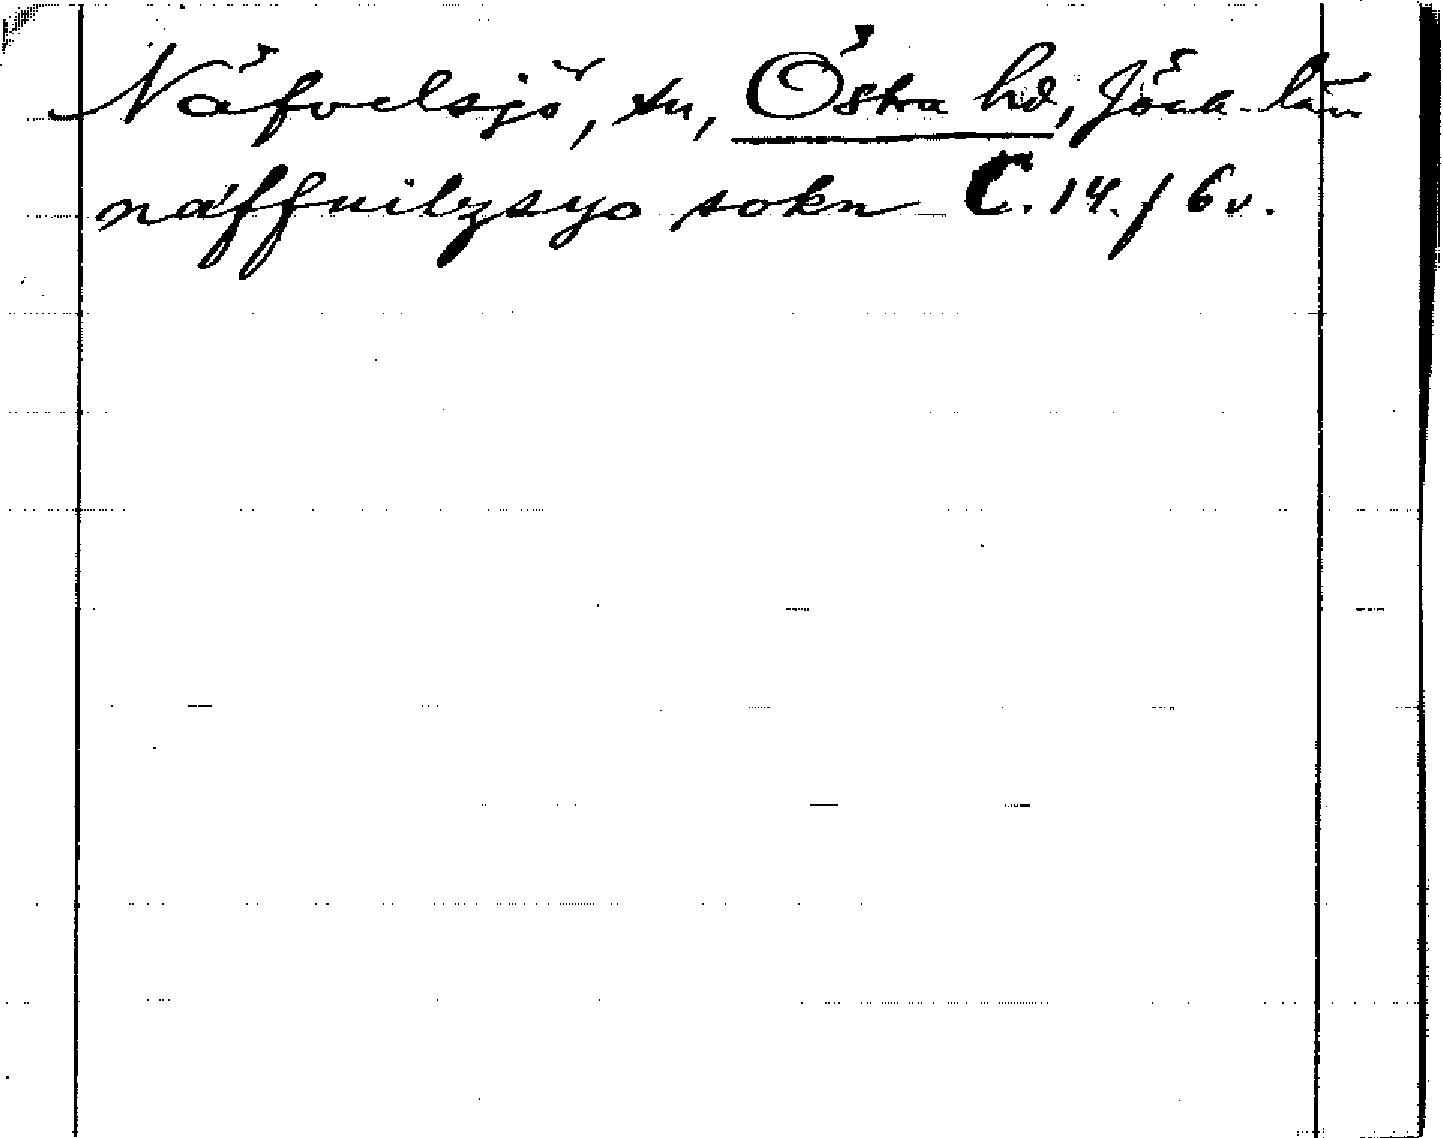 Näfvelsjö, sn, Östra hd, Jöck. län
näffuilzsyo sokn C. 14./6 v.